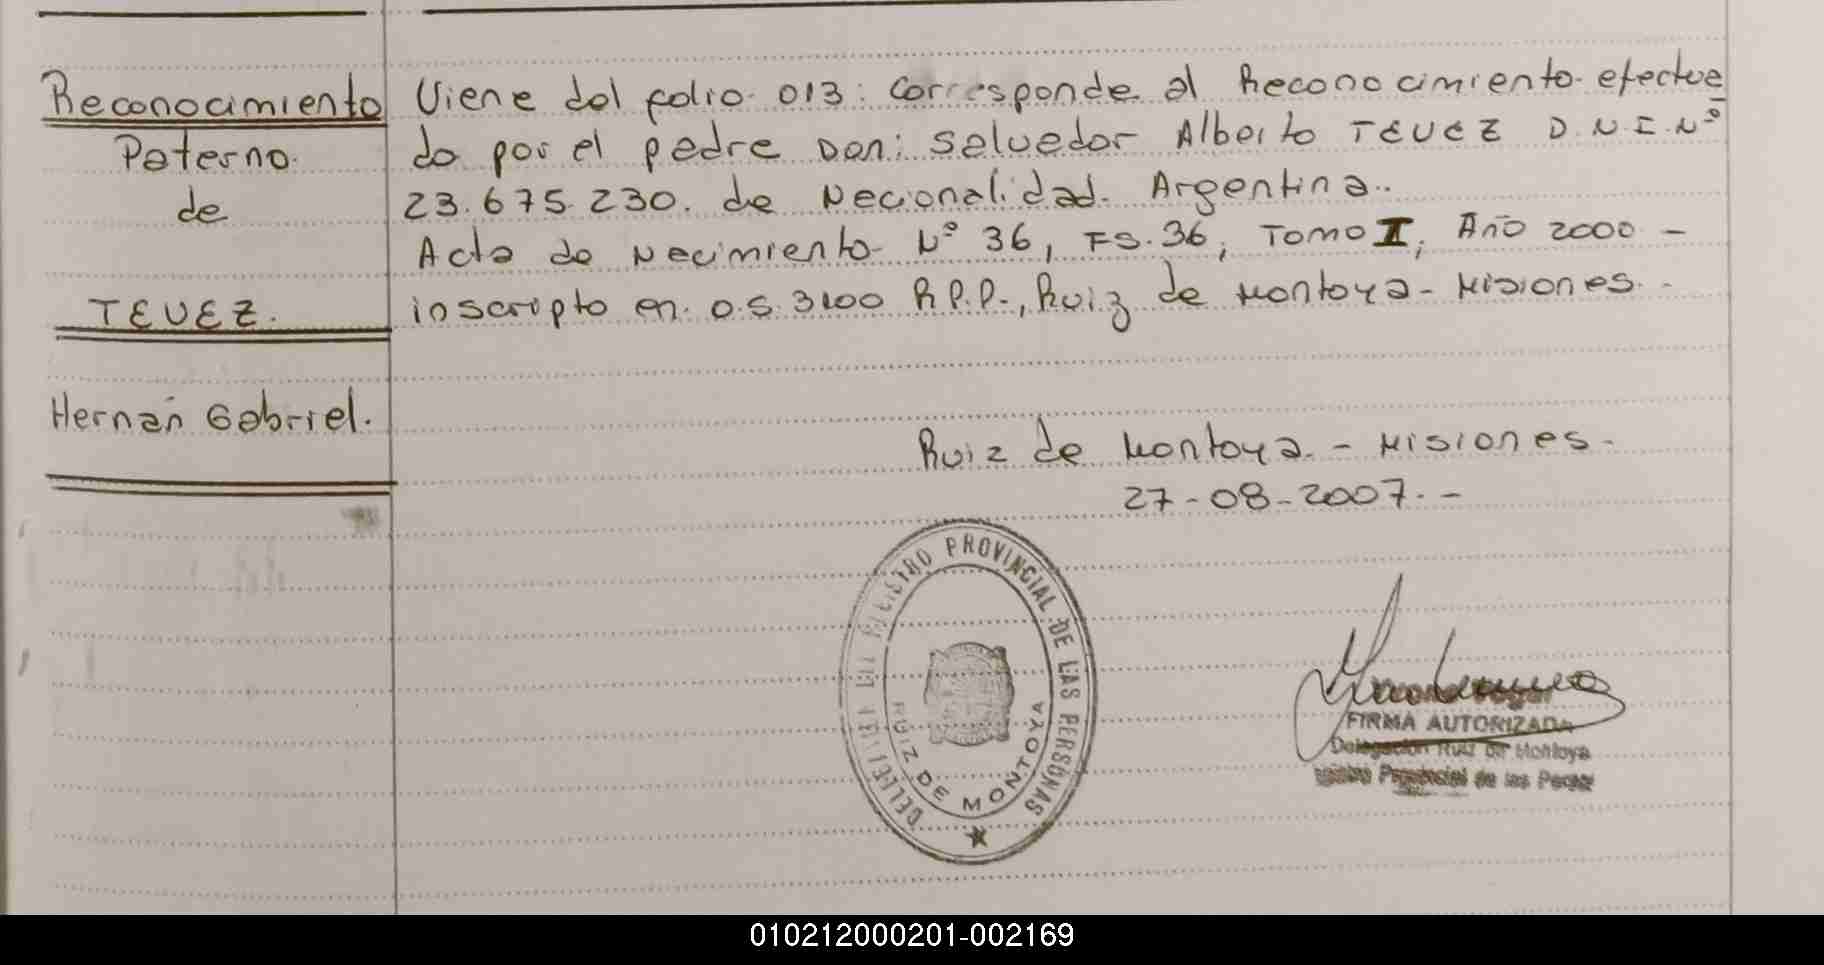 Reconocimiento
Paterno.
de
TEVEZ.
Hernán Gabriel.
Viene del folio 013: Corresponde al Reconocimiento efectua
do por el padre Don: Salvador Alberto TEVEZ D.N.I.Nº
23.675.230. de Nacionalidad Argentina.
Acta de Nacimiento Nº 36, FS. 36, TOMO I, Año 2000 -
inscripto en O.S. 3100 R.P.P., Ruiz de Montoya - Misiones.-
Ruiz de Montoya - Misiones.
27-08-2007.-
REGISTRO PROVINCIAL DE LAS PERSONAS
RUIZ DE MONTOYA
FIRMA AUTORIZADA
Delegación Ruiz de Montoya
Provincial de las
010212000201-002169